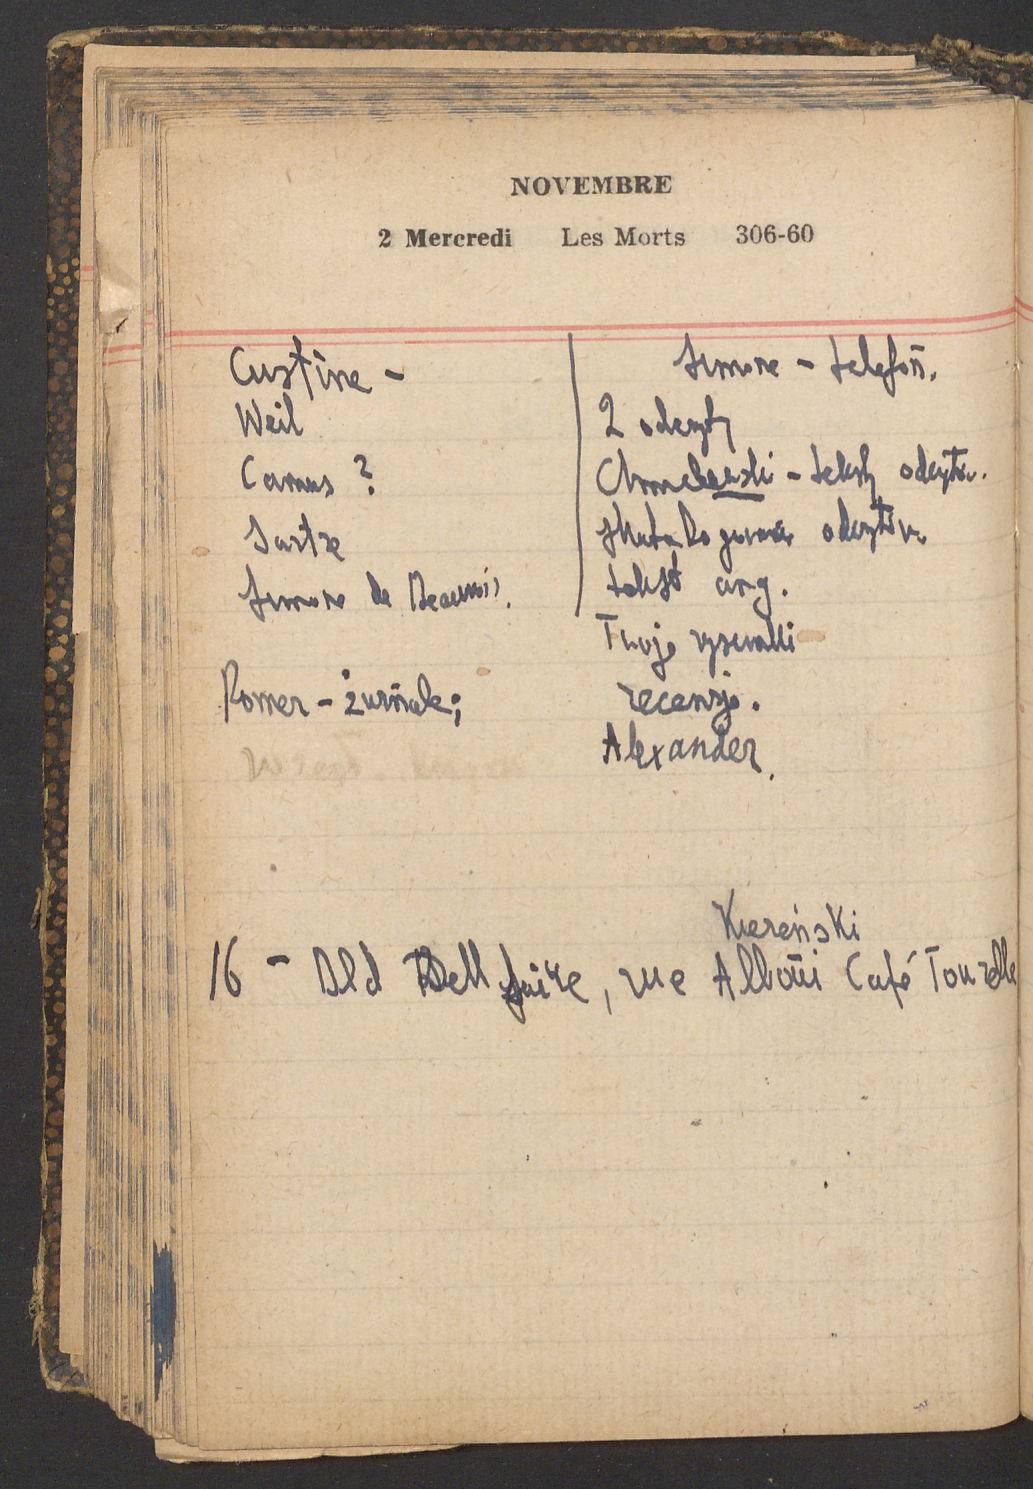 NOVEMBRE
2 Mercredi Les Morts 306-60
Custine -
Weil
Camus ?
Sartre
Simone de Beauvoir.
Romer - żurnale;
Simone - telefon.
2 odczyty
Chmielewski - teksty odczytów.
odczytów
tekst ang.
Twoje
recenzje.
Alexander.
Kiereński
16 - Bld Dellfaire, rue Alboni Café Tourelle